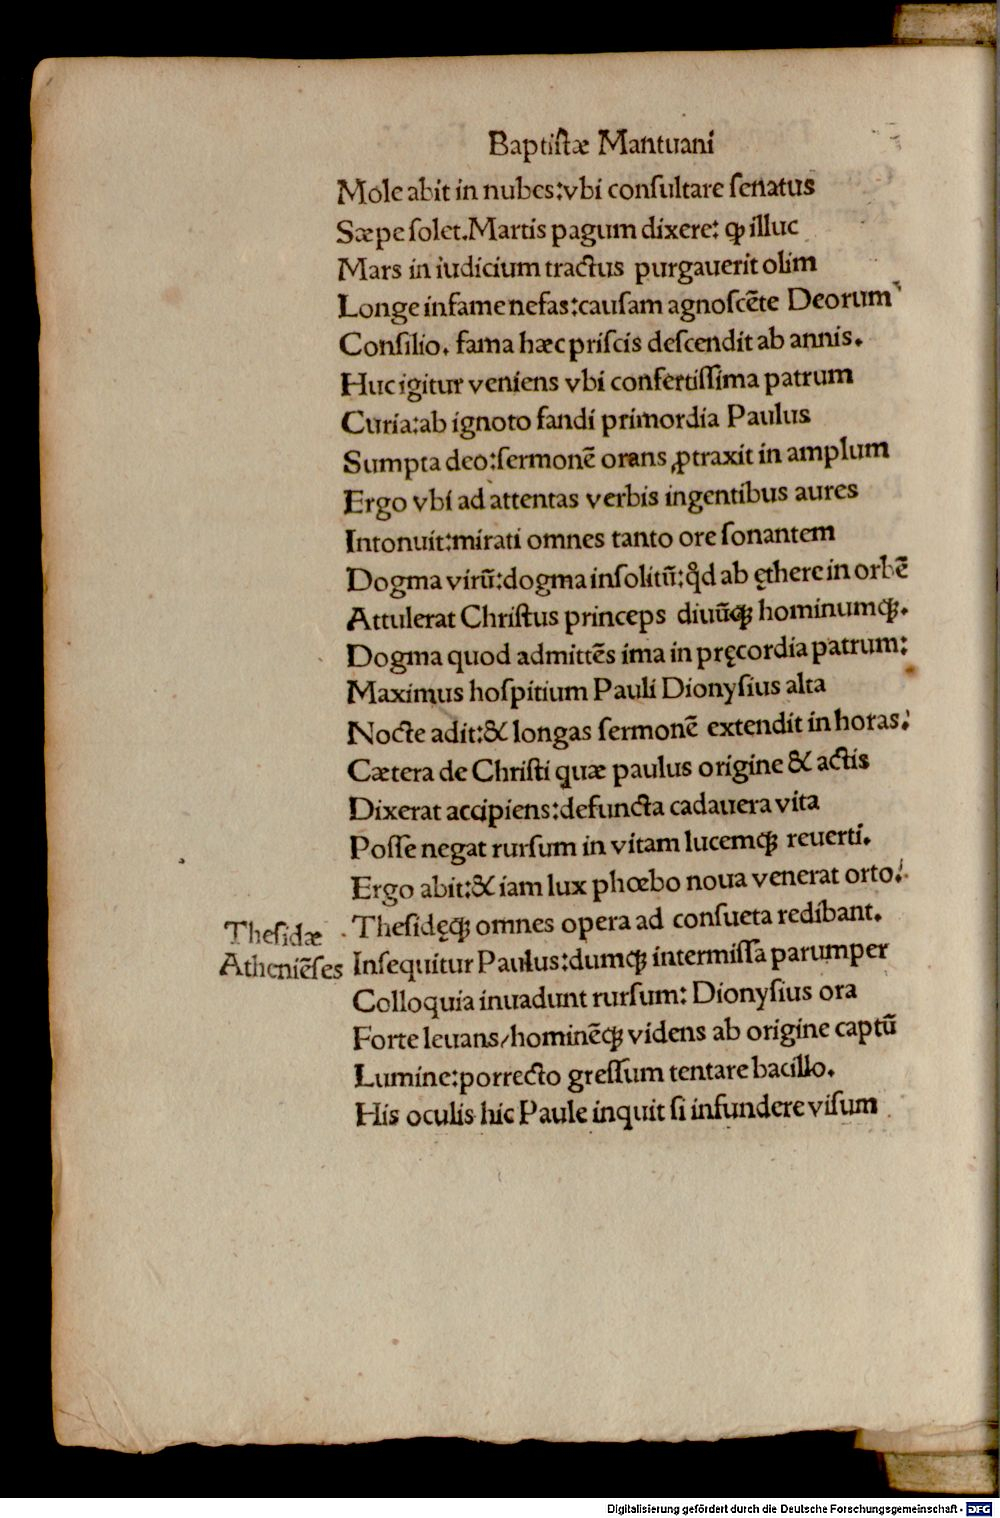 Baptistæ Mantuani
Mole abit in nubes:vbi conſultare ſenatus
Sæpe ſolet.Martis pagum dixere: ꝙ illuc
Mars in iudicium tractus purgauerit olim
Longe infame nefas:cauſam agnoſcēte Deorum
Conſilio. fama hæc priſcis deſcendit ab annis.
Huc igitur veniens vbi confertiſſima patrum
Curia:ab ignoto fandi primordia Paulus
Sumpta deo:ſermonē orans ꝓtraxit in amplum
Ergo vbi ad attentas verbis ingentibus aures
Intonuit:mirati omnes tanto ore ſonantem
Dogma virū:dogma inſolitū:qd̛ ab ęthere in orbē
Attulerat Chriſtus princeps diuūqꝫ hominumqꝫ.
Dogma quod admittēs ima in pręcordia patrum:
Maximus hoſpitium Pauli Dionyſius alta
Nocte adit:& longas ſermonē extendit in horas.
Cætera de Chriſti quæ paulus origine & actis
Dixerat accipiens:defuncta cadauera vita
Poſſe negat rurſum in vitam lucemqꝫ reuerti.
Ergo abit:& iam lux phœbo noua venerat orto.
Theſidæ
Theſidęqꝫ omnes opera ad conſueta redibant.
Atheniēſes
Inſequitur Paulus:dumqꝫ intermiſſa parumper
Colloquia inuadunt rurſum: Dionyſius ora
Forte leuans/hominēqꝫ videns ab origine captū
Lumine:porrecto greſſum tentare bacillo.
His oculis hic Paule inquit ſi infundere viſum
Digitalisierung gefördert durch die Deutsche Forschungsgemeinschaft - DFG